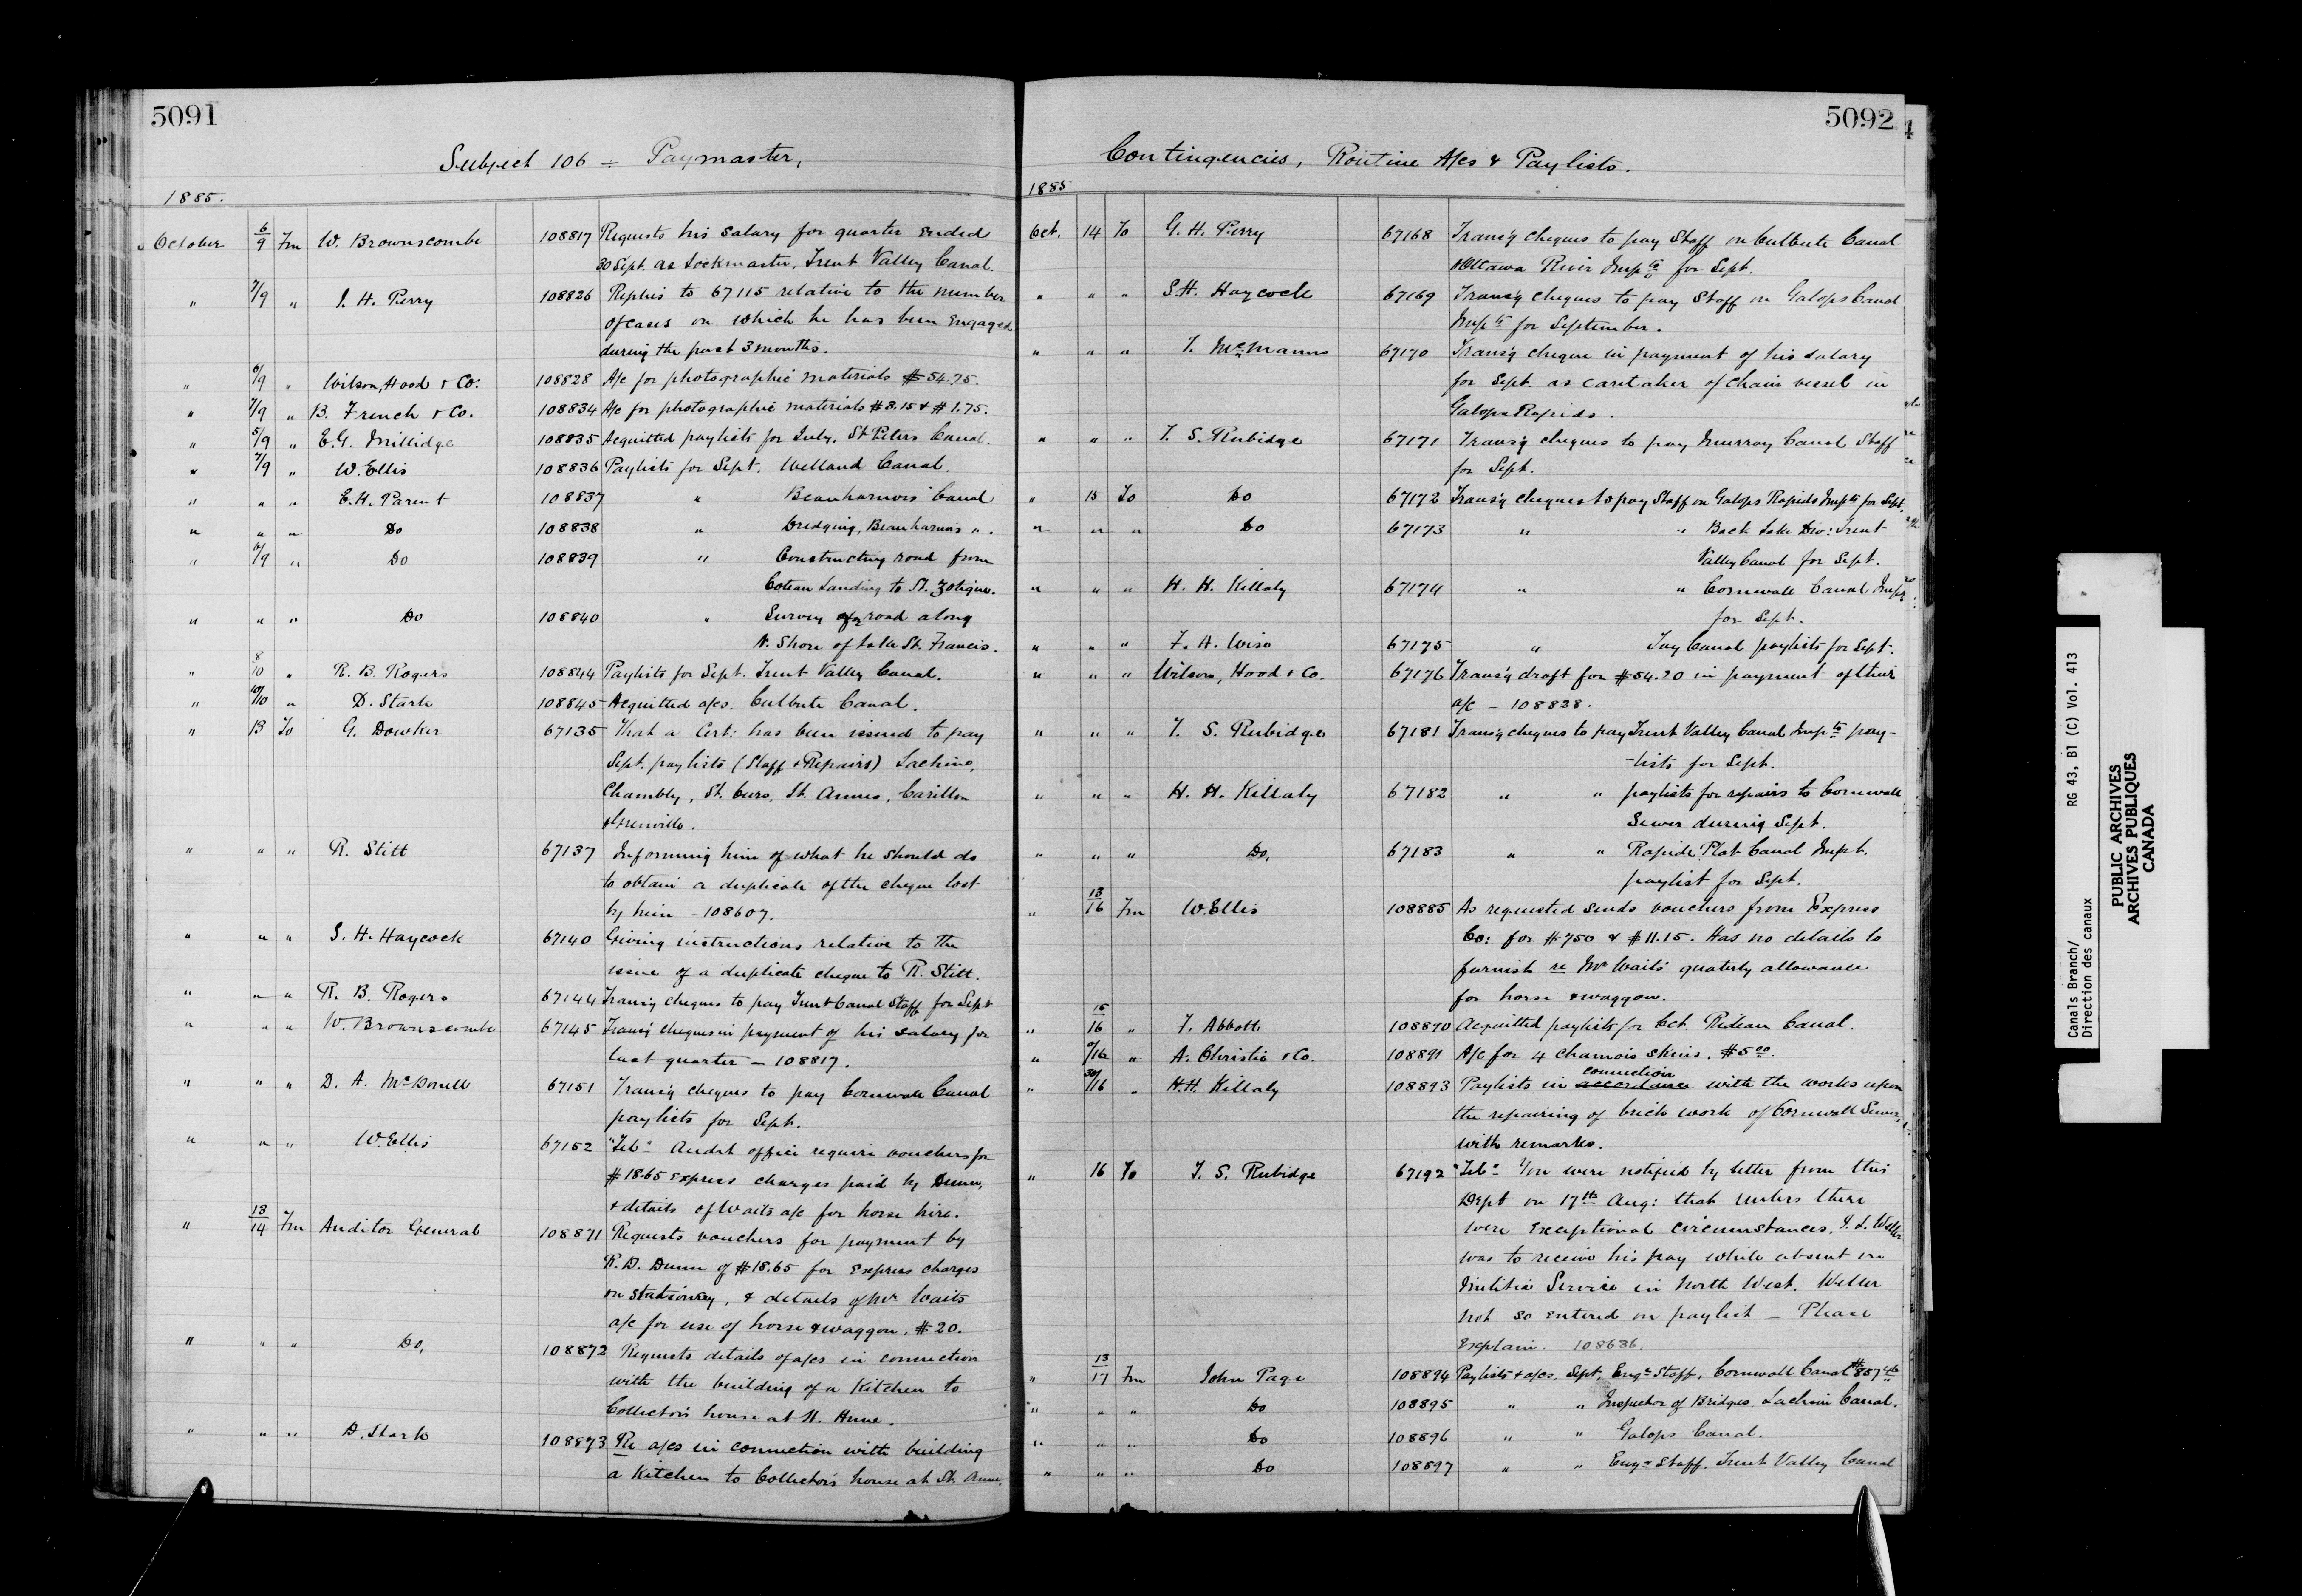 5091
Subject 106 ÷ Paymaster,
1885.
October 6/9 Fm W. Brownscombe 108817 Requests his salary for quarter ended
30 Sept. as Lockmaster, Trent Valley Canal.
" 7/9 " J. H. Perry 108826 Replies to 67115 relative to the number
of cases on which he has been engaged
during the past 3 months.
" 6/9 " Wilson, Hood & Co: 108828 A/c for photographic materials $54.75.
" 7/9 " B. French & Co. 108834 A/c for photographic materials $3.15 & $1.75.
" 5/9 " E. G. Millidge 108835 Acquitted paylists for July, St Peters Canal.
" 7/9 " W. Ellis 108836 Paylists for Sept. Welland Canal.
" " " E. H. Parent 108837 " Beauharnois Canal
" " " Do 108838 " Dredging, Beauharnois ".
" 6/9 " Do 108839 " Constructing road from
Coteau Landing to St. Zotique.
" " " Do 108840 " Survey of road along
N. Shore of Lake St. Francis.
" 8/10 " R. B. Rogers 108844 Paylists for Sept. Trent Valley Canal.
" 10/10 " D. Stark 108845 Acquitted a/cs. Culbute Canal.
" 13 To G. Dowker 67135 That a Cert: has been issued to pay
Sept. paylists (Staff & Repairs) Lachine,
Chambly, St. Ours, St. Annes, Carillon
& Grenville.
" " " R. Stitt 67137 Informing him of what he should do
to obtain a duplicate of the cheque lost
by him - 108607.
" " " S. H. Haycock 67140 Giving instructions relative to the
issue of a duplicate cheque to R. Stitt.
" " " R. B. Rogers 67144 Trans'g cheques to pay Trent Canal Staff for Sept
" " " W. Brownscombe 67145 Trans'g cheques in payment of his salary for
last quarter - 108817.
" " " D. A. McDonell 67151 Trans'g cheques to pay Cornwall Canal
paylists for Sept.
" " " W. Ellis 67152 "Tel" Audit office require vouchers for
$18.65 express charges paid by Dunn,
& details of Waits a/c for horse hire.
" 13/14 Fm Auditor General 108871 Requests vouchers for payment by
R. D. Dunn of $18.65 for Express charges
on stationery, & details of Mr Waits
a/c for use of horse & waggon, $20.
" " " Do, 108872 Requests details of a/cs in connection
with the building of a Kitchen to
Collector's house at St. Anne.
" " " D. Stark 108873 Re a/cs in connection with building
a Kitchen to Collector's house at St. Anne.
5092
Contingencies, Routine A/cs & Paylists.
1885
Oct. 14 To G. H. Perry 67168 Trans'g cheques to pay Staff on Culbute Canal
& Ottawa River Impts for Sept.
" " " S. H. Haycock 67169 Trans'g cheques to pay Staff on Galops Canal
Impts for September.
" " " T. McManus 67170 Trans'g cheque in payment of his salary
for Sept. as caretaker of chain vessel in
Galops Rapids.
" " " T. S. Rubidge 67171 Trans'g cheques to pay Murray Canal Staff
for Sept.
" 15 To Do 67172 Trans'g cheques to pay Staff on Galops Rapids Impts for Sept.
" " " Do 67173 " " Back Lake Div: Trent
Valley Canal for Sept.
" " " H. H. Killaly 67174 " " Cornwall Canal Impts
for Sept.
" " " F. A. Wise 67175 " Tay Canal paylists for Sept.
" " " Wilson, Hood & Co. 67176 Trans'g draft for $54.20 in payment of their
a/c - 108828.
" " " T. S. Rubidge 67181 Trans'g cheques to pay Trent Valley Canal Impts pay-
-lists for Sept.
" " " H. H. Killaly 67182 " " paylists for repairs to Cornwall
Sewer during Sept.
" " " Do, 67183 " " Rapide Plat Canal Impt.
paylist for Sept.
" 13/16 Fm W. Ellis 108885 As requested sends vouchers from Express
Co: for $7.50 & $11.15. Has no details to
furnish re Mr Waits' quaterly allowance
for horse & waggon.
" 15/16 " F. Abbott 108890 Acquitted paylists for Oct. Rideau Canal.
" /16 " A. Christie & Co. 108891 A/c for 4 chamois skins. $5.00.
" 30/16 " H. H. Killaly 108893 Paylists in accordance connection with the works upon
the repairing of brick work of Cornwall Sewer,
with remarks.
" 16 To T. S. Rubidge 67192 "Tel" You were notified by letter from this
Dept on 17th Aug: that unless there
were exceptional circumstances, J. L. Weller
was to receive his pay while absent on
Militia Service in North West. Weller
not so entered on paylist - Please
Explain. 108636.
" 13/17 Fm John Page 108894 Paylists & a/cs. Sept. Engr Staff, Cornwall Canal $857.46
" " " Do 108895 " " Inspector of Bridges Lachine Canal.
" " " Do 108896 " " Galops Canal.
" " " Do 108897 " " Engr Staff. Trent Valley Canal
Canals Branch/ RG 43, B1 (C) Vol. 413
Direction des canaux
PUBLIC ARCHIVES
ARCHIVES PUBLIQUES
CANADA